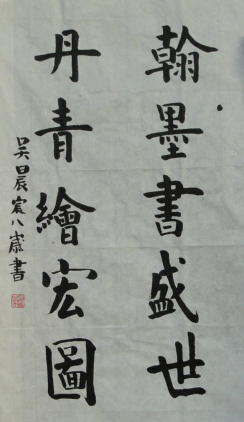 翰墨書盛世
丹青繪宏圖
吴晨宸八歲書